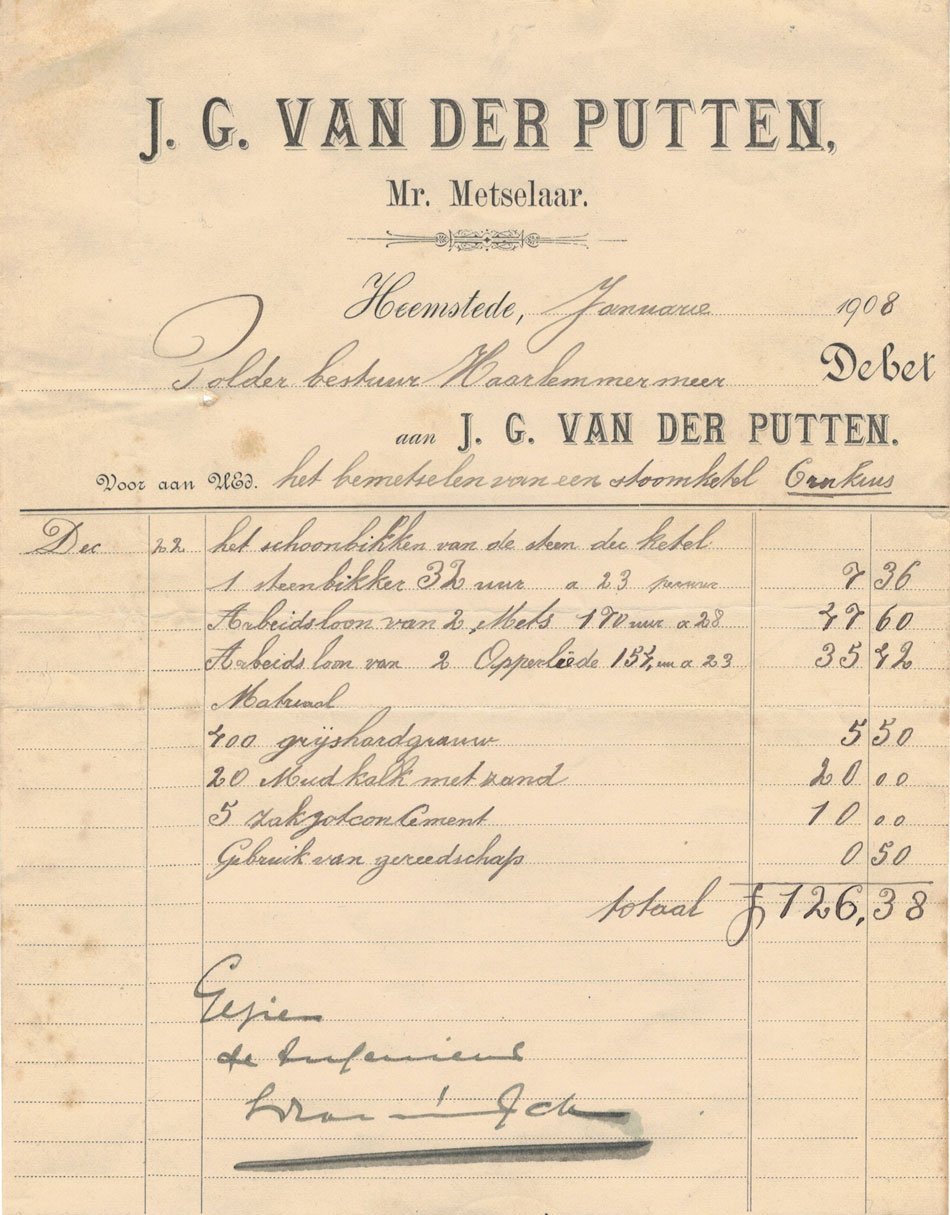 J. G. VAN DER PUTTEN,
Mr. Metselaar.
Heemstede, Januarie 1908
Polder bestuur Haarlemmermeer Debet
aan J. G. VAN DER PUTTEN.
Voor aan UEd. het bemetselen van een stoomketel Crukius
Dec 22 het schoonbikken van de steen der ketel
1 steenbikker 32 uur a 23 per uur 7 36
Arbeidsloon van 2 Mets 170 uur a 28 47 60
Arbeidsloon van 2 Opperliede 154 uur a 23 35 42
Matriaal
400 grijshardgrauw 5 50
20 Mud kalk met zand 20 00
5 zak Cement 10 00
Gebruik van gereedschap 0 50
totaal f 126,38
Gezien
de Ingenieur